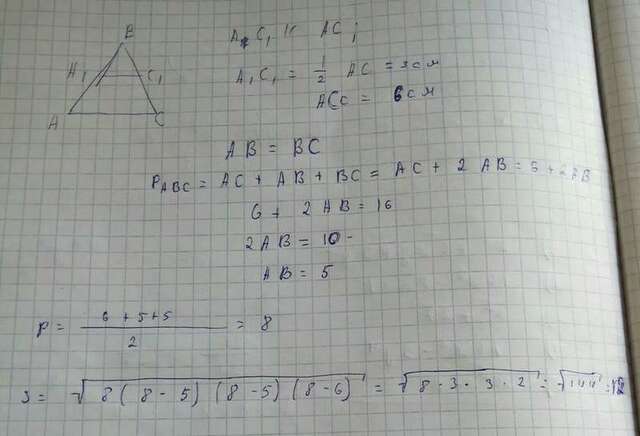 B
A₁ C₁
A C
A₁ C₁ || AC;
A₁ C₁ = 1/2 AC = 3см
AC = 6см
AB = BC
P_ABC = AC + AB + BC = AC + 2 AB = 6 + 2AB
6 + 2AB = 16
2AB = 10
AB = 5
p = (6 + 5 + 5)/2 = 8
S = √(8(8 - 5)(8 - 5)(8 - 6)) = √(8 · 3 · 3 · 2) = √144 = 12